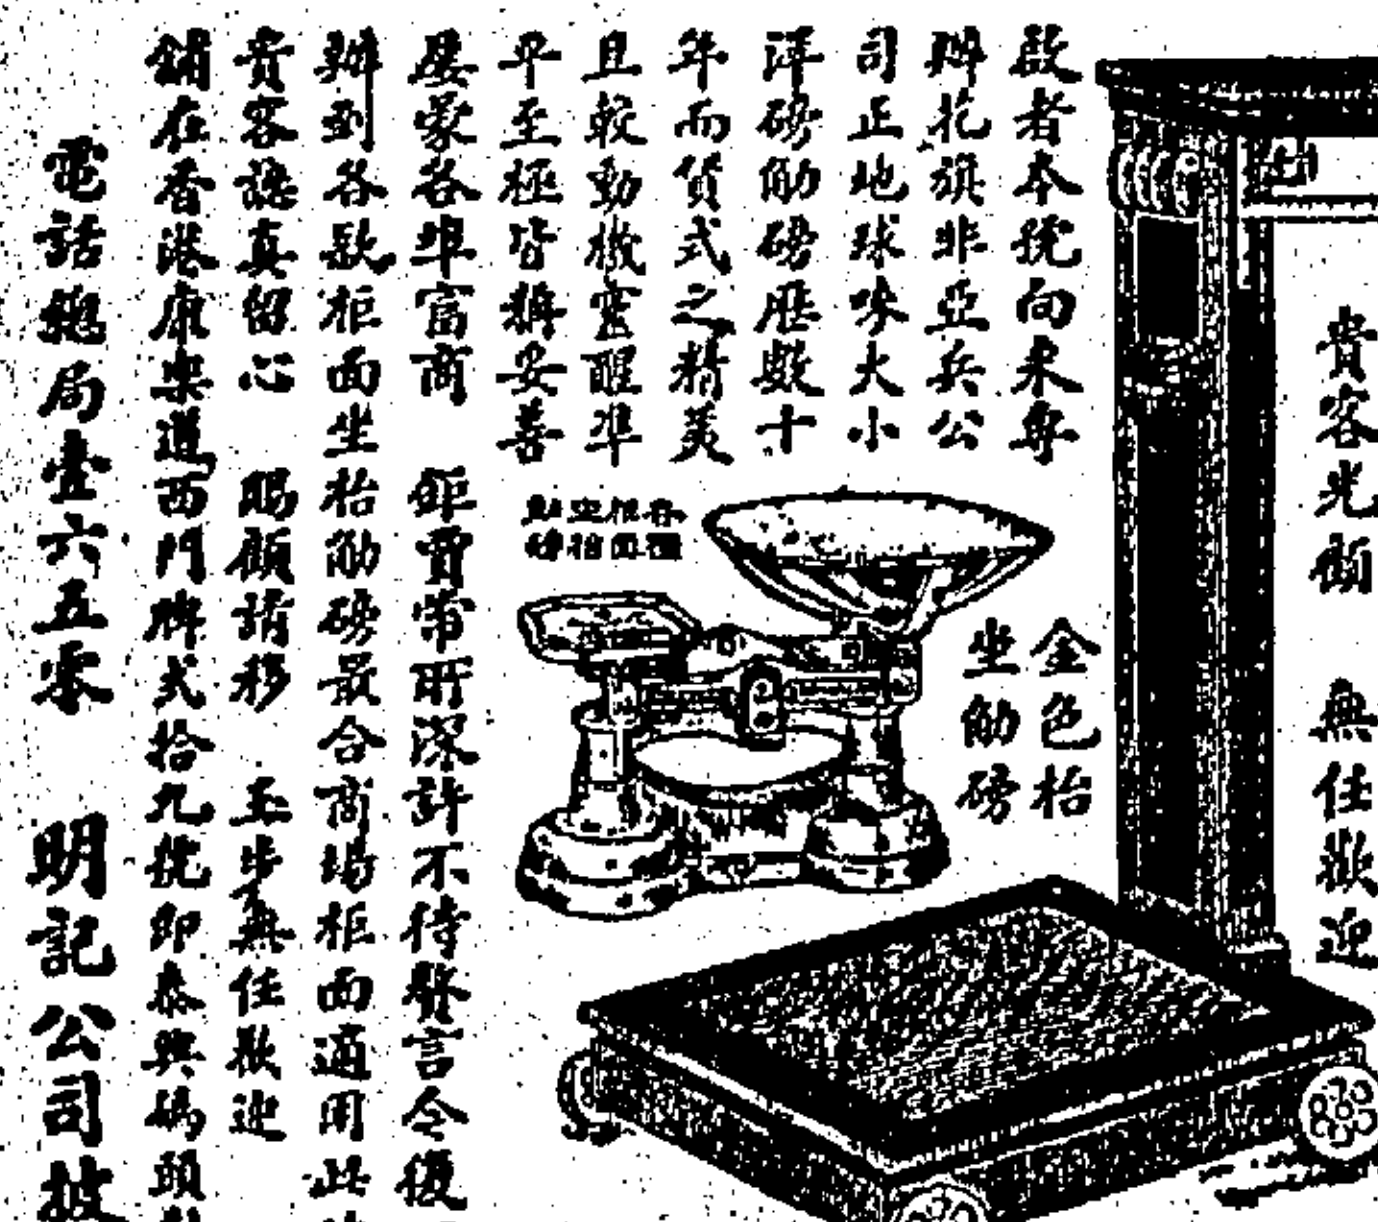 貴客光顧　無任歡迎
啟者本號向來專
辦花旗非亞兵公
司正地球嘜大小
洋磅觔磅歷數十
年而貨式之精美
且較動機靈醒準
平至極皆稱妥善
屢蒙各埠富商　鉅賈常所深許不待贅言今復
辦到各款柜面坐枱觔磅最合商場柜面適用此
貴客認真留心　賜顧請移　玉步無任歡迎
舖在香港康樂道西門牌弍拾九號即泰興碼頭
電話總局壹六五零　明記公司披
各種
柜面
坐枱
金色枱
坐觔磅